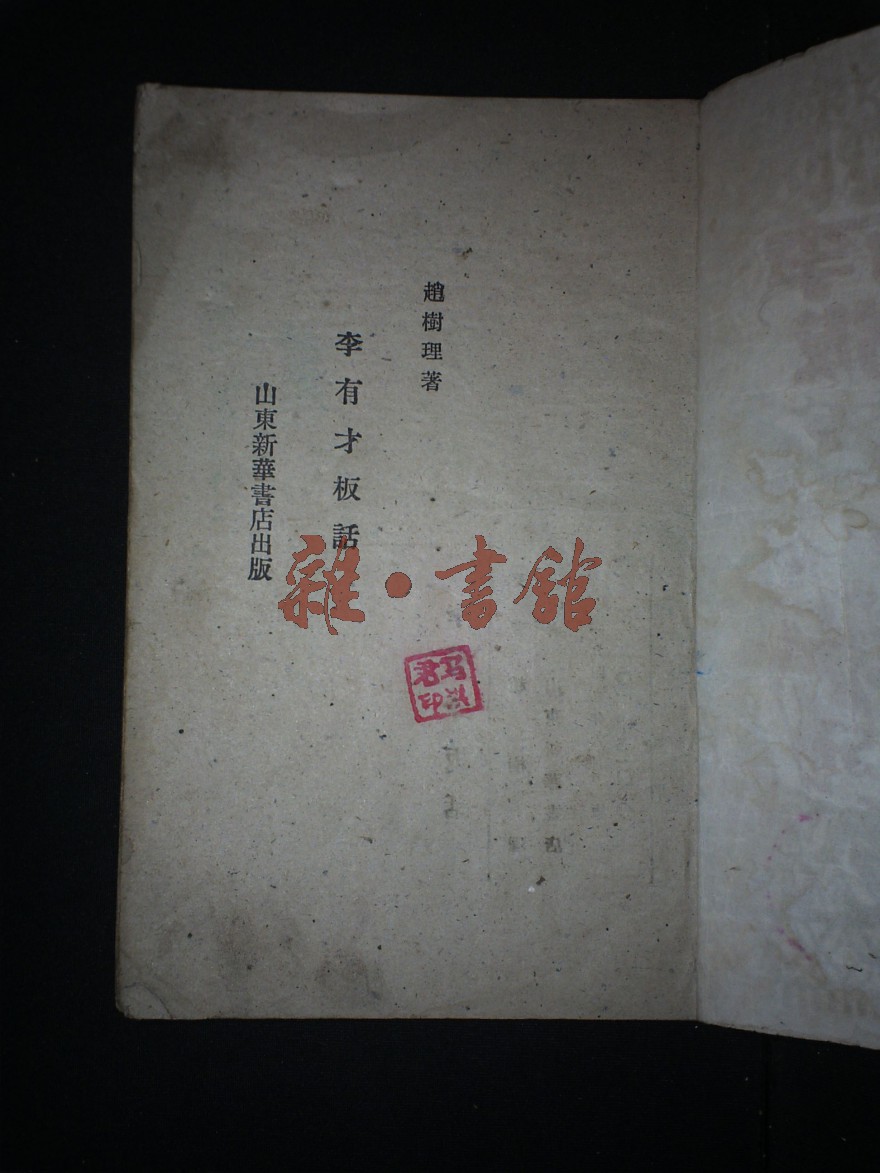 趙樹理著
李有才板話
山東新華書店出版
雜·書館